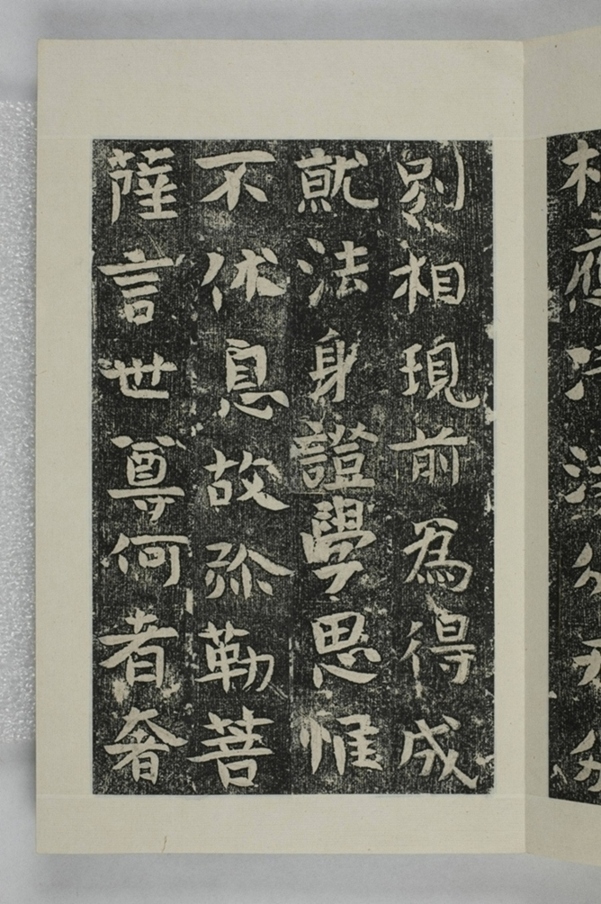 別相現前為得成
就法身證學思惟
不伏息故弥勒菩
薩言世尊何者奢